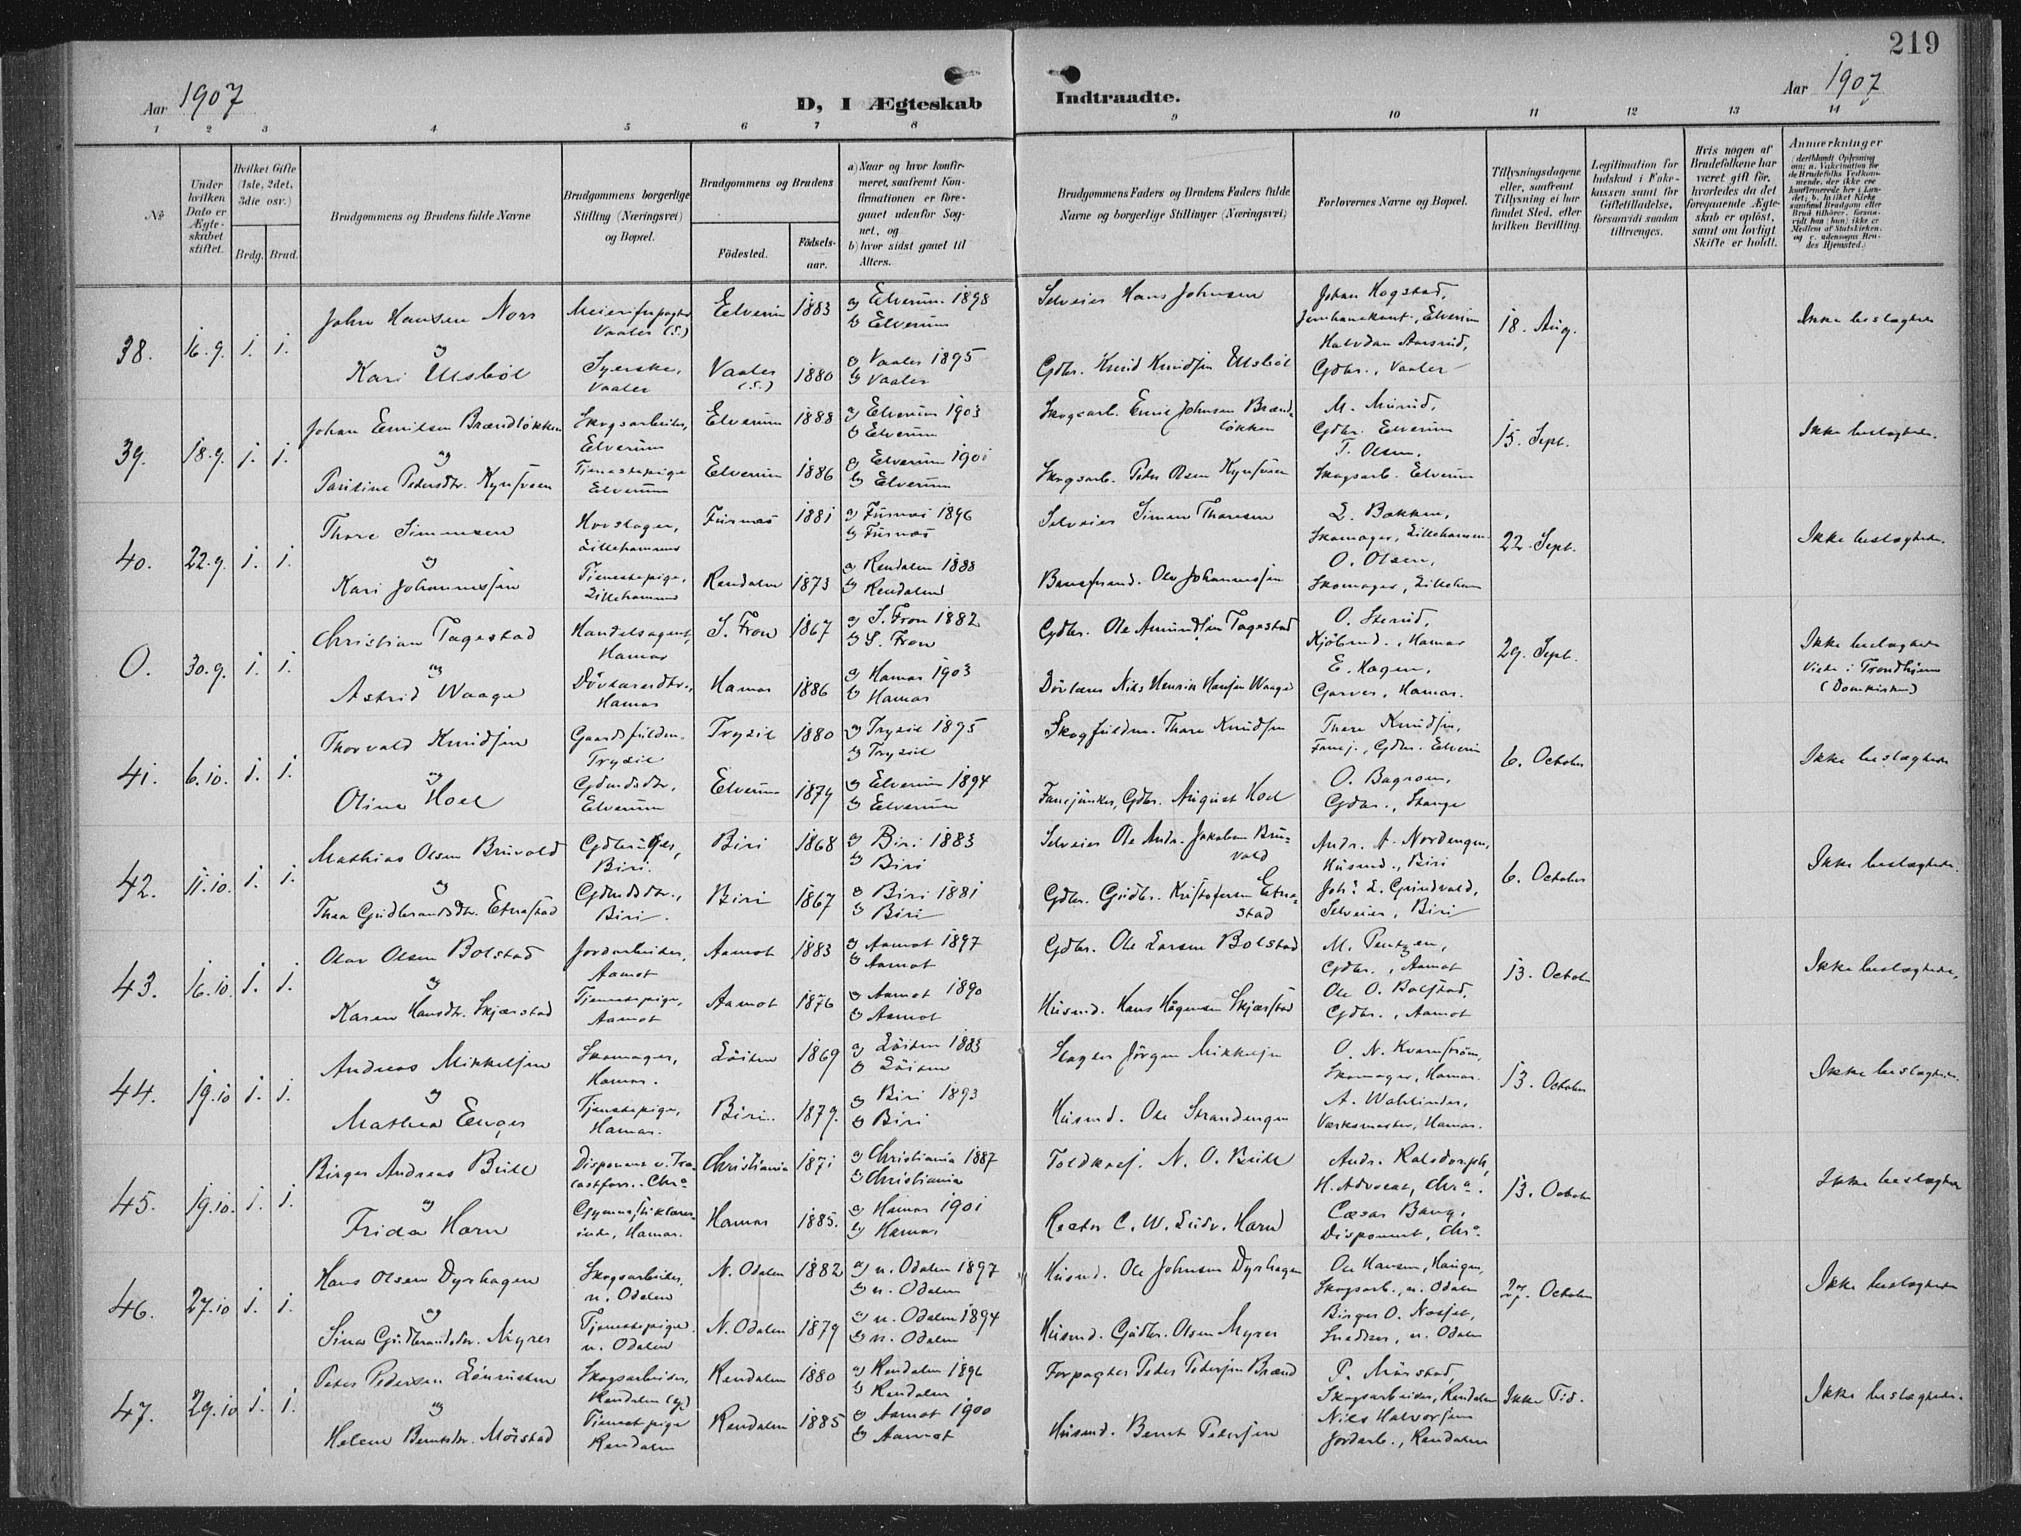 219
Aar 1907
D, I Ægteskab
Indtraadte.
Aar 1907
1 2 3 4 5 6 7 8 9 10 11 12 13 14
No
Under hvilken Dato er Ægteskabet stiftet.
Hvilket Gifte (1ste, 2det, 3die osv.)
Brdg. Brud.
Brudgommens og Brudens fulde Navne
Brudgommens borgerlige Stilling (Næringsvei) og Bopæl.
Brudgommens og Brudens
Födested.
Födselsaar.
a) Naar og hvor konfirmeret, saafremt Konfirmationen er foregaaet udenfor Sognet, og
b) hvor sidst gaaet til Alters.
Brudgommens Faders og Brudens Faders fulde Navne og borgerlige Stillinger (Næringsvei)
Forlovernes Navne og Bopæl.
Tillysningsdagene eller, saafremt Tillysning ei har fundet Sted, efter hvilken Bevilling.
Legitimation for Indskud i Enkekassen samt for Giftetilladelse, forsaavidt saadan tiltrænges.
Hvis nogen af Brudefolkene har været gift för, hvorledes da det foregaaende Ægteskab er oplöst, samt om lovligt Skifte er holdt.
Anmærkninger
38. 16.9. 1. 1.
John Hansen Nors
Vaaler (S.)
Elverum 1883
a) Elverum 1898
b) Elverum
Selveier Hans Johnsen
Johan Hogstad,
Elverum
18. Aug.
Ikke beslægtede
og
Kari Ulsböl
Syerske,
Vaaler
Vaaler (S.) 1880
a) Vaaler 1895
b) Vaaler
Gdbr. Knud Knudsen Ulsböl
Halvdan Aarsrud,
Gdbr., Vaaler
39. 18.9. 1. 1.
Johan Emilsen Brændlökken
Skogsarbeider,
Elverum
Elverum 1888
a) Elverum 1903
b) Elverum
Skogsarb. Emil Johnsen Brændlökken
M. Mürud,
Gdbr. Elverum
15. Sept.
Ikke beslægtede.
og
Pauline Pedersdtr. Kynsveen
Tjenestepige
Elverum
Elverum 1886
a) Elverum 1901
b) Elverum
Skogsarb. Peder Olsen Kynsveen
T. Olsen,
Skogsarb. Elverum
40. 22.9. 1. 1.
Thore Simensen
Hovslager,
Lillehammer
Furnæs 1881
a) Furnæs 1896
b) Furnæs
Selveier Simen Thoresen
L. Bakken,
Skomager, Lillehammer
22. Sept.
Ikke beslægtede.
og
Kari Johannessen
Tjenestepige,
Lillehammer
Rendalen 1873
a) Rendalen 1888
b) Rendalen
Ole Johannessen
O. Olsen,
Skomager, Lilleham
0. 30.9. 1. 1.
Christian Tagestad
Handelsagent,
Hamar
S. Fron 1867
a) S. Fron 1882
b) S. Fron
Gdbr. Ole Amundsen Tagestad
O. Sterud,
Kjöbmd., Hamar
29. Sept.
Ikke beslægtede
Viede i Trondhjem
(Domkirken)
og
Astrid Waage
Hamar
Hamar 1886
a) Hamar 1903
b) Hamar
Dövlærer Nils Henrik Hansen Waage
E. Hagen,
Garver, Hamar.
41. 6.10. 1. 1.
Thorvald Knudsen
Trysil
Trysil 1880
a) Trysil 1895
b) Trysil
Thore Knudsen
Thore Knudsen,
Gdbr. Elverum
6. October
Ikke beslægtede
og
Olina Hoel
Gdmdsdtr,
Elverum
Elverum 1879
a) Elverum 1894
b) Elverum
Fanejunker, Gdbr. August Hoel
O. Bagroen,
Gdbr., Stange
42. 11.10. 1. 1.
Mathias Olsen Bruvold
Gdbruger,
Biri.
Biri 1868
a) Biri 1883
b) Biri
Selveier Ole Andr. Jakobsen Bruvold
Andr. A. Nordengen,
Husmd., Biri
6. October
Ikke beslægtede.
og
Thea Gudbrandsdtr. Etnestad
Gdmdsdtr.,
Biri.
Biri 1867
a) Biri 1881
b) Biri
Gdbr. Gudbr. Kristofersen Etnestad
Joh? L. Grindvold,
Selveier, Biri
43. 16.10. 1. 1.
Olav Olsen Bolstad
Jordarbeider,
Aamot
Aamot 1883
a) Aamot 1897
b) Aamot
Gdbr. Ole Larsen Bolstad
M. Pentzen,
Gdbr., Aamot
13. October
Ikke beslægtede.
og
Karen Hansdtr. Skjærstad
Tjenestepige,
Aamot
Aamot 1876
a) Aamot 1890
b) Aamot
Husmd. Hans Hågensen Skjærstad
Ole O. Bolstad,
Gdbr., Aamot
44. 19.10 1. 1.
Andreas Mikkelsen
Skomager,
Hamar.
Löiten 1869
a) Löiten 1883
b) Löiten
Slagter Jörgen Mikkelsen
O. N. Kvarnström,
Skomager, Hamar.
13. October
Ikke beslægtede.
og
Mathea Enger
Tjenestepige,
Hamar.
Biri. 1879.
a) Biri 1893
b) Biri
Husmd. Ole Strandengen
A. Wahlinder,
Værksmester, Hamar.
45. 19.10. 1. 1.
Birger Andreas Brill
Christiania 1871
a) Christiania 1887
b) Christiania
N. O. Brill
Andr. Rolsdorph,
H. Advocat, Chra.
13. October
Ikke beslægtede
og
Frida Horn
Gymnastiklærerinde, Hamar.
Hamar 1885.
a) Hamar 1901
b) Hamar
Rector C. W. Ludv. Horn
Cæsar Bang,
Disponent, Chra.
46. 27.10 1. 1.
Hans Olsen Dyrhagen
Skogsarbeider,
n. Odalen
N. Odalen 1882
a) n. Odalen 1897
b) n. Odalen
Husmd. Ole Johnsen Dyrhagen
Ole Hansen, Haugen,
Skogsarb., n. Odalen
27. October
Ikke beslægtede
og
Sina Gudbrandsdtr. Myrer
Tjenestepige
n. Odalen
N. Odalen 1879
a) n. Odalen 1894
b) n. Odalen
Husmd. Gudbr. Olsen Myrer
Birger O. Nosset,
Snedker, n. Odalen
47. 29.10 1. 1.
Peter Pedersen Lönrusten
Skogsarbeider,
Rendalen
Rendalen 1880
a) Rendalen 1896
b) Rendalen
Forpagter Peter Pedersen Brænd
P. Mörstad,
Skogsarbeider, Rendalen
Ikke Tid.
Ikke beslægtede.
og
Helene Berntsdtr. Mörstad
Tjenestepige
Rendalen
Rendalen 1885
a) Aamot 1900
b) Aamot
Husmd. Bernt Petersen
Nils Halvorsen
Jordarb., Rendalen